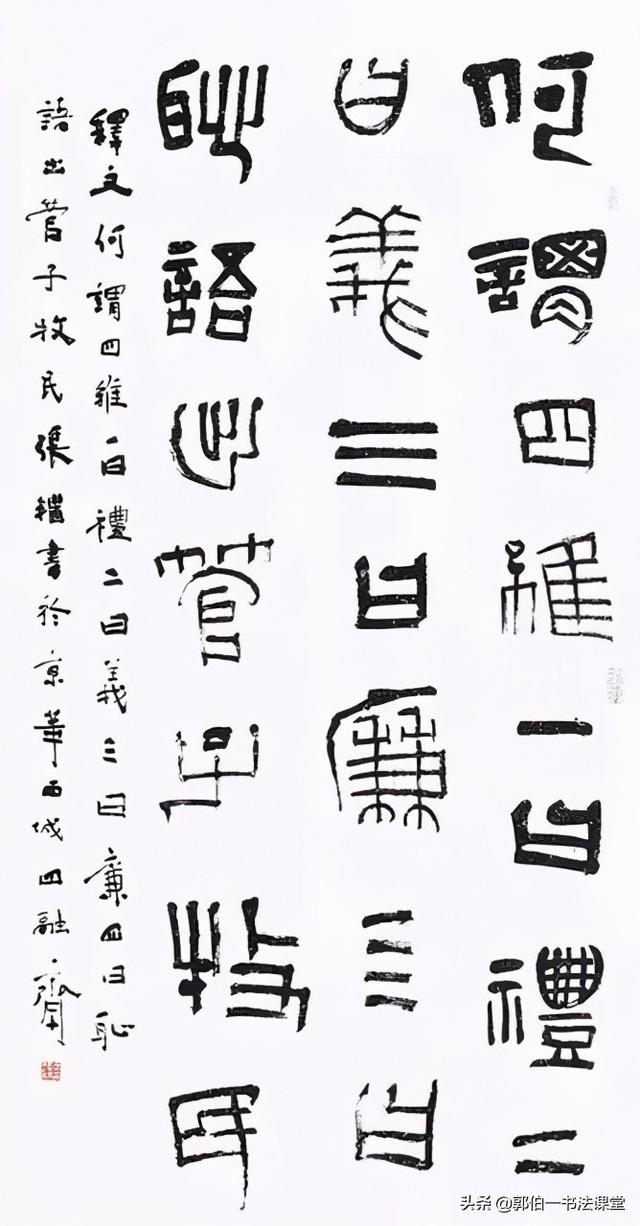 何謂四維一曰禮二
曰義三曰廉亖曰
耻語出管子牧民
釋文何謂四維一曰禮二曰義三曰廉四曰耻
語出管子牧民張繼書於京華西城四融齋
头条 @郭伯一书法课堂